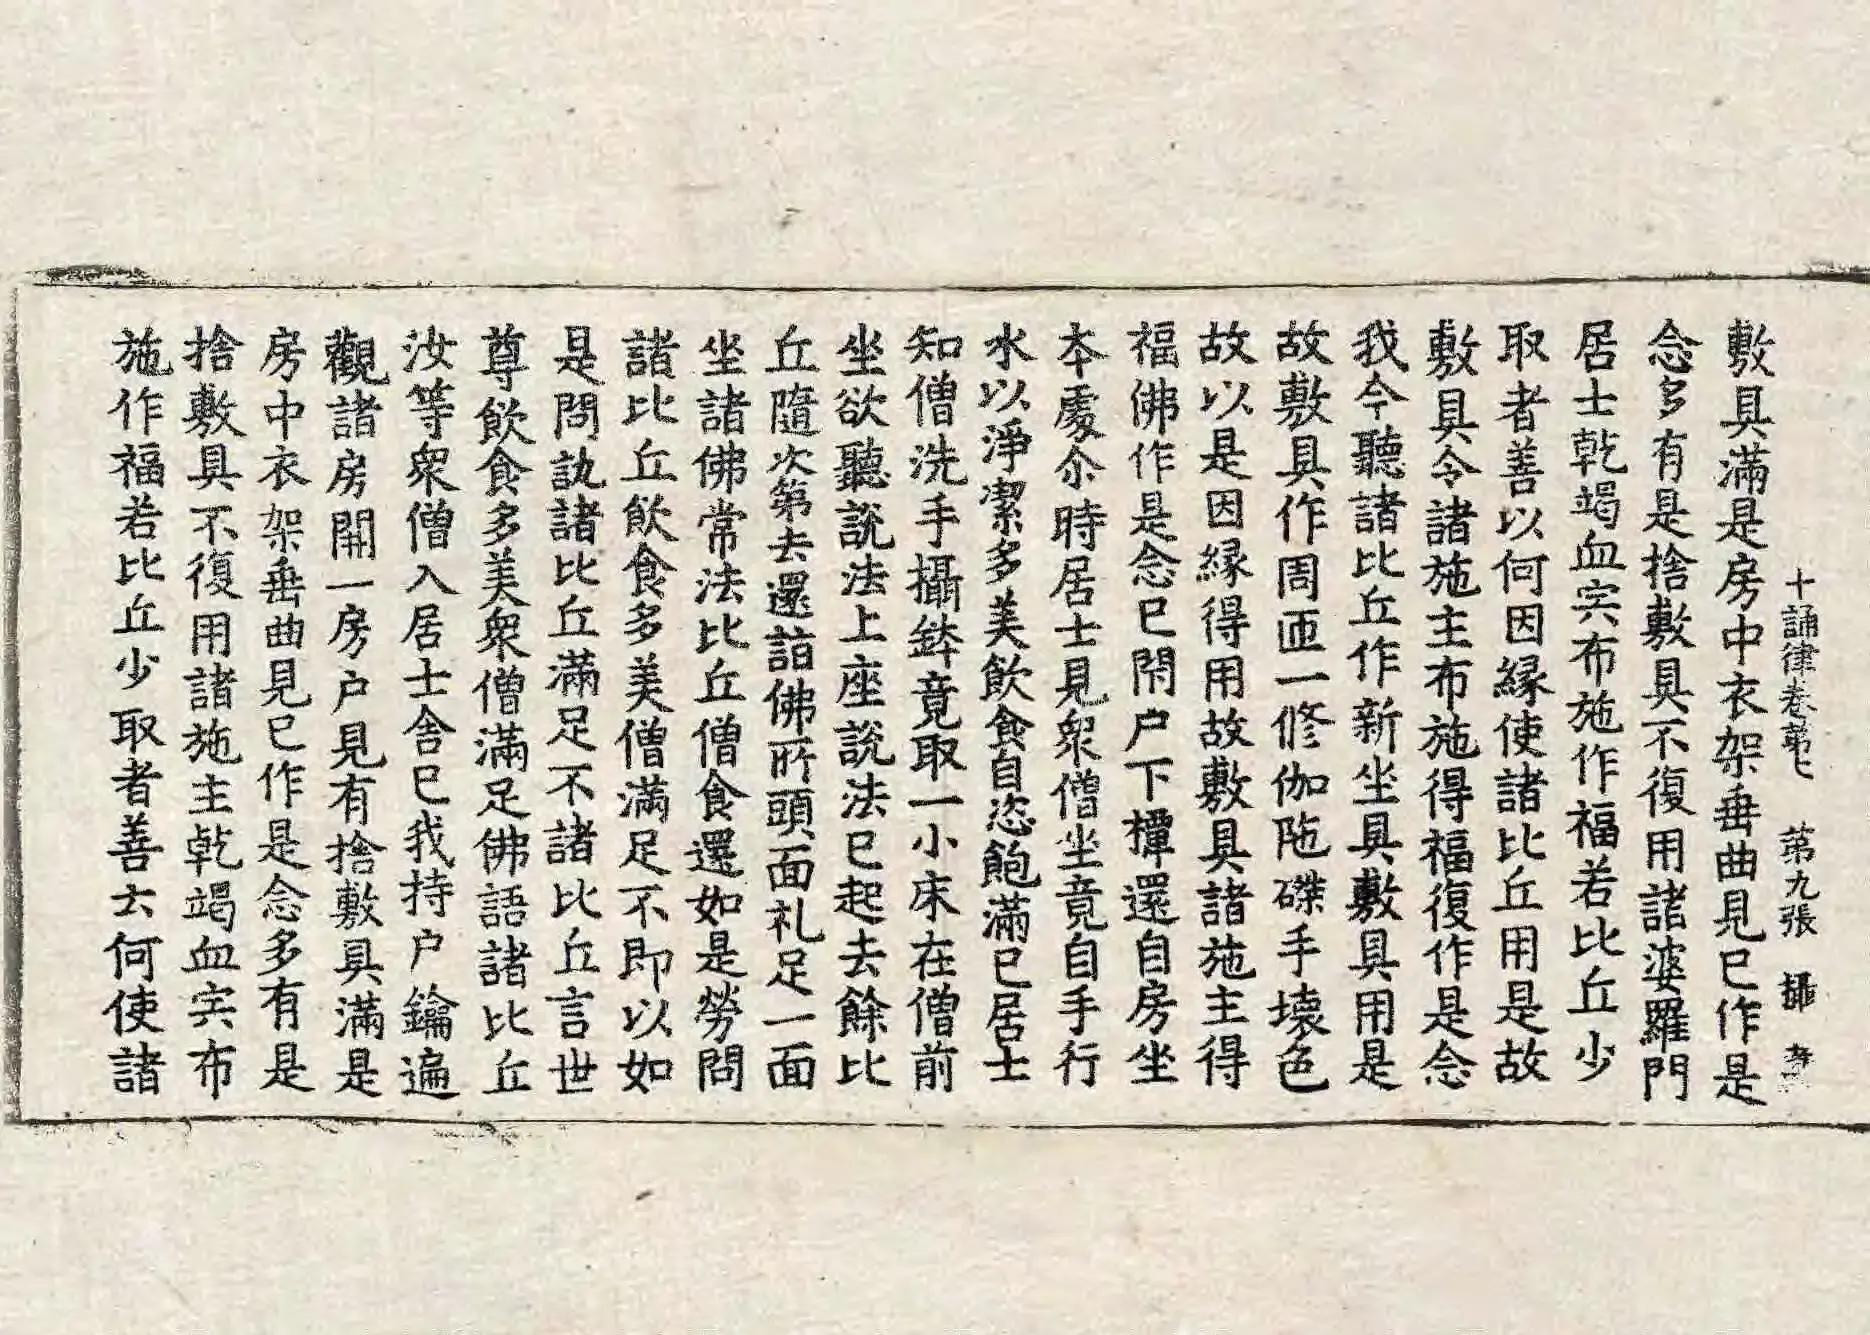 十誦律卷第七　第九張　攝
敷具滿是房中衣架垂曲見已作是
念多有是捨敷具不復用諸婆羅門
居士乾竭血宍布施作福若比丘少
取者善以何因緣使諸比丘用是故
敷具令諸施主布施得福復作是念
我今聽諸比丘作新坐具敷具用是
故敷具作周匝一修伽陁磔手壞色
故以是因緣得用故敷具諸施主得
福佛作是念已閇户下撢還自房坐
夲處尒時居士見衆僧坐竟自手行
水以淨潔多美飲食自恣飽滿已居士
知僧洗手攝鉢竟取一小床在僧前
坐欲聽說法上座說法已起去餘比
丘隨次第去還詣佛所頭面礼足一面
坐諸佛常法比丘僧食還如是勞問
諸比丘飲食多美僧滿足不即以如
是問訙諸比丘滿足不諸比丘言世
尊飲食多美衆僧滿足佛語諸比丘
汝等衆僧入居士舍已我持户鑰遍
觀諸房開一房户見有捨敷具滿是
房中衣架垂曲見已作是念多有是
捨敷具不復用諸施主乾竭血宍布
施作福若比丘少取者善云何使諸